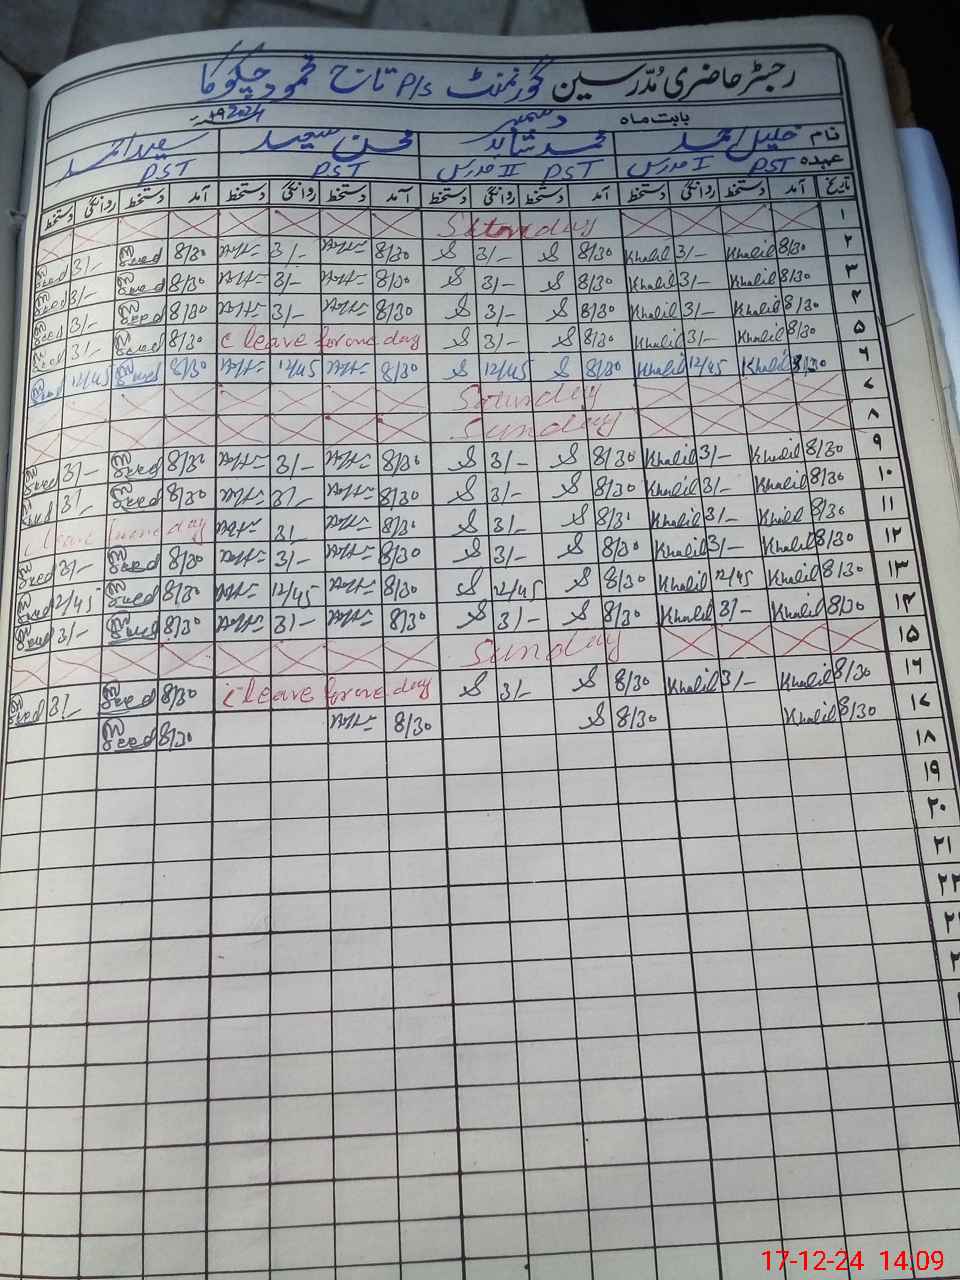 رجسٹر حاضری مُدّرسین گورنمنٹ P/S تاج محمود چکوکا
بابت ماہ دسمبر 2024ء
نام خلیل احمد محمد شاہد محسن سعید سعید احمد
عہدہ PST مدرس I PST مدرس II PST PST
تاریخ آمد دستخط روانگی دستخط آمد دستخط روانگی دستخط آمد دستخط روانگی دستخط آمد دستخط روانگی دستخط
۱
۲ 8/30 Khalil 3/- Khalil 8/30 3/- 8/30 3/- 8/30 Saeed 3/- Saeed
۳ 8/30 Khalil 3/- Khalil 8/30 3/- 8/30 3/- 8/30 Saeed 3/- Saeed
۴ 8/30 Khalil 3/- Khalil 8/30 3/- 8/30 3/- 8/30 Saeed 3/- Saeed
۵ 8/30 Khalil 3/- Khalil 8/30 3/- c leave for one day 8/30 Saeed 3/- Saeed
۶ 8/30 Khalil 12/45 Khalil 8/30 12/45 8/30 12/45 8/30 Saeed 12/45 Saeed
۷ Sunday
۸ Sunday
۹ 8/30 Khalil 3/- Khalil 8/30 3/- 8/30 3/- 8/30 Saeed 3/- Saeed
۱۰ 8/30 Khalil 3/- Khalil 8/30 3/- 8/30 3/- 8/30 Saeed 3/- Saeed
۱۱ 8/30 Khalil 3/- Khalil 8/31 3/- 8/30 3/- c leave for one day
۱۲ 8/30 Khalil 3/- Khalil 8/30 3/- 8/30 3/- 8/30 Saeed 3/- Saeed
۱۳ 8/30 Khalil 12/45 Khalil 8/30 12/45 8/30 12/45 8/30 Saeed 12/45 Saeed
۱۴ 8/30 Khalil 3/- Khalil 8/30 3/- 8/30 3/- 8/30 Saeed 3/- Saeed
۱۵ Sunday
۱۶ 8/30 Khalil 3/- Khalil 8/30 3/- c leave for one day 8/30 Saeed 3/- Saeed
۱۷ 8/30 Khalil 8/30 8/30 8/30 Saeed
۱۸
۱۹
۲۰
۲۱
۲۲
17-12-24 14:09